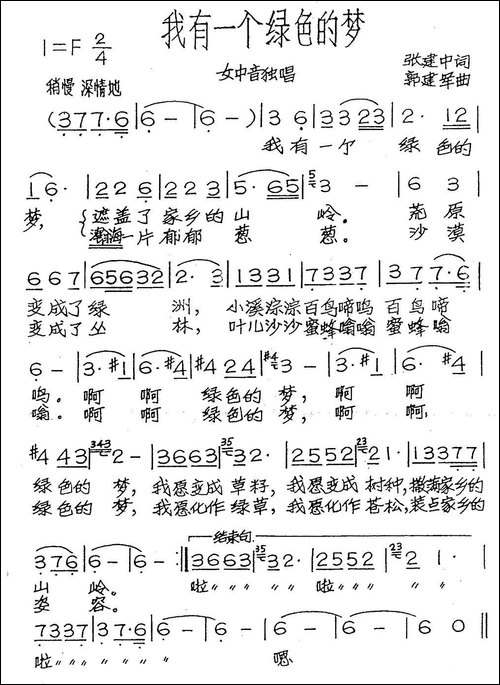 我有一个绿色的梦
1=F 2/4
女中音独唱
张建中词
郭建军曲
稍慢 深情地
(377·6|6-|6-)|36|3323|2·12|
我有一个 绿 色的
16·|226|223|5·65|53-|63|
梦, 遮盖了家乡的山 岭。 荒原
瀚海一片郁郁葱 葱。 沙漠
667|65632|2·3|1331|7337|377·6|
变成了绿 洲, 小溪淙淙百鸟啼鸣 百鸟啼
变成了丛 林, 叶儿沙沙蜜蜂嗡嗡 蜜蜂嗡
6-|3·#1|6·#4|#424|#43-|3·#1|6·#4|
鸣。啊 啊 绿色的 梦, 啊 啊
嗡。啊 啊 绿色的 梦, 啊 啊
#443|3432-|3663|3532·|2552|2321·|13377|
绿色的 梦, 我愿变成 草籽, 我愿变成 树种, 撒满家乡的
绿色的 梦, 我愿化作 绿草, 我愿化作 苍松, 装点家乡的
结束句
376|6-|6-:‖3663|3532·|2552|231·|
山 岭。 啦〃〃〃 〃〃 啦〃〃〃 〃 〃
姿 容。
7337|37·6|6-|6-|6-|6-|60‖
啦〃〃〃 〃〃 〃 〃 嗯